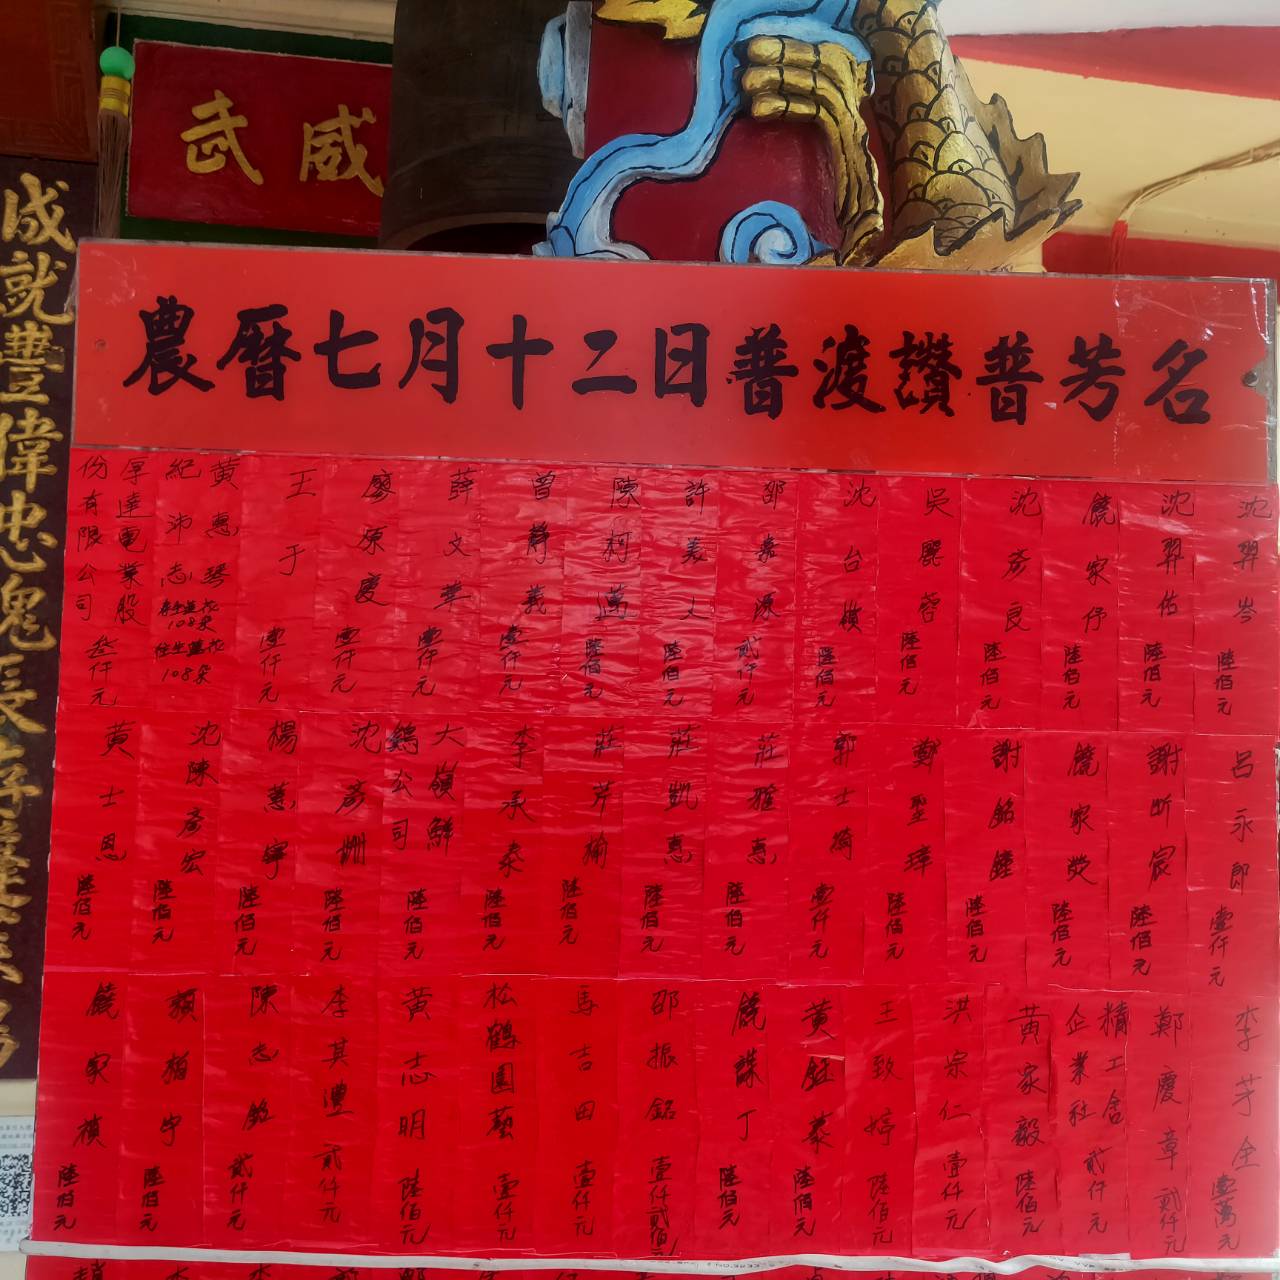 武威
農曆七月十二日普渡讚普芳名
沈羿岑 陸佰元
沈羿佑 陸佰元
饒家伃 陸佰元
沈彥良 陸佰元
吳麗蓉 陸佰元
沈台嶺 陸佰元
邵嘉源 貳仟元
許美人 陸佰元
陳柯邁 陸佰元
曾靜義 壹仟元
薛文華 壹仟元
廖原慶 壹仟元
王于 壹仟元
黃惠琴
紀沛志
108朵
往生蓮花
108朵
孚達電業股
份有限公司 叁仟元
呂永郎 壹仟元
謝昕宸 陸佰元
饒家熒 陸佰元
謝銘鐘 陸佰元
鄭聖瑋 陸佰元
郭士綺 壹仟元
莊雅惠 陸佰元
莊凱惠 陸佰元
莊芹榆 陸佰元
李承泰 陸佰元
大嶺鮮
鷄公司 陸佰元
沈彥 陸佰元
楊蕙寧 陸佰元
沈陳彥宏 陸佰元
黃士恩 陸佰元
李芓全 壹萬元
鄭慶章 貳仟元
精工舍
企業社 貳仟元
黃家毅 陸佰元
洪宗仁 壹仟元
王致婷 陸佰元
黃鈺棻 陸佰元
饒諌丁 陸佰元
邵振銘 壹仟貳佰元
馬吉田 壹仟元
松鶴園藝 壹仟元
黃志明 陸佰元
李其澧 貳仟元
陳志銘 貳仟元
賴柏宇 陸佰元
饒家禎 陸佰元
成就豐偉忠鬼長存